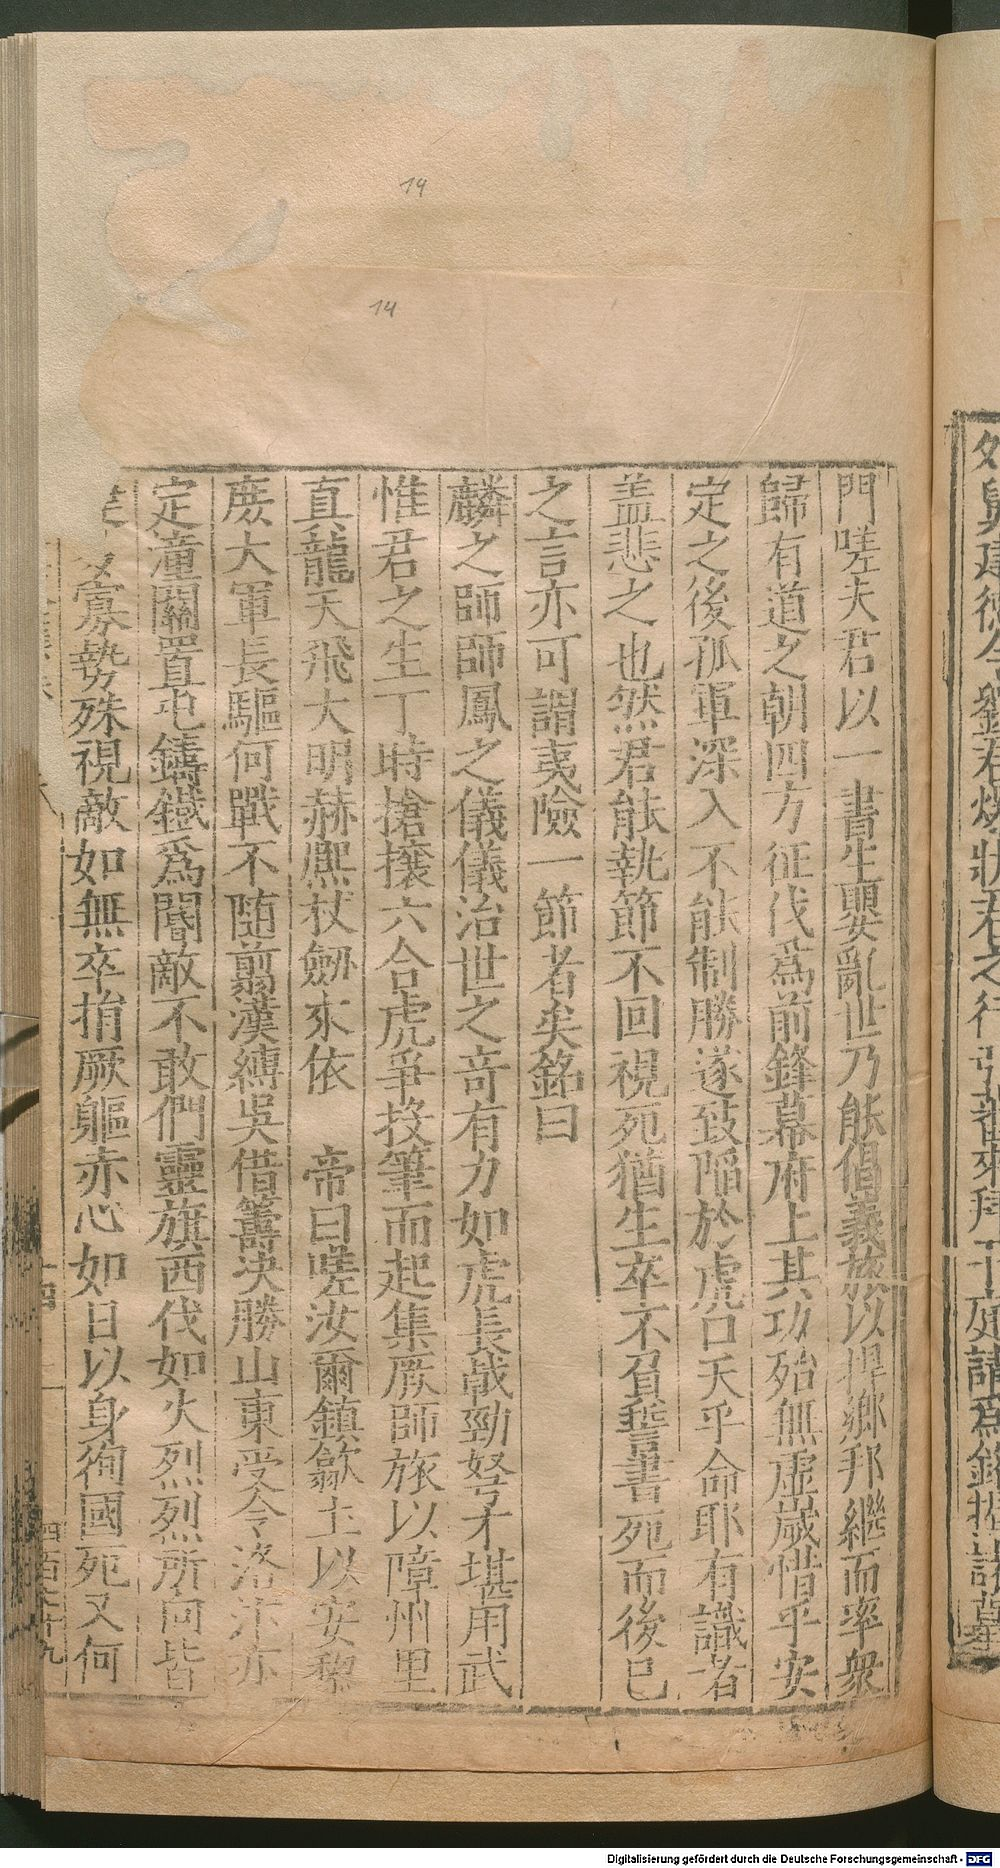 14
14
門嗟夫君以一書生嬰亂世乃能倡義旅以捍鄉邦繼而率衆
歸有道之朝四方征伐爲前鋒幕府上其功殆無虛歲惜乎安
定之後孤軍深入不能制勝遂致陷於虎口天乎命耶有識者
盖悲之也然君能執節不回視死猶生卒不負誓書死而後已
之言亦可謂夷險一節者矣銘曰
麟之師師鳳之儀儀治世之奇有力如虎長戟勁弩才堪用武
惟君之生丁時搶攘六合虎爭投筆而起集厥師旅以障州里
真龍天飛大明赫熈杖劒來依 帝曰嗟汝爾鎮歙土以安黎
庶大軍長驅何戰不随翦漢縛吳借籌决勝山東受令洛汴亦
定潼關置屯鑄鐵爲閽敵不敢捫靈旗西伐如火烈烈所向皆
寡勢殊視敵如無卒捐厥軀赤心如日以身徇國死又何
十四
如與建德令劉君炳狀君之行 來拜于庭請爲銘揭諸墓
Digitalisierung gefördert durch die Deutsche Forschungsgemeinschaft - DFG